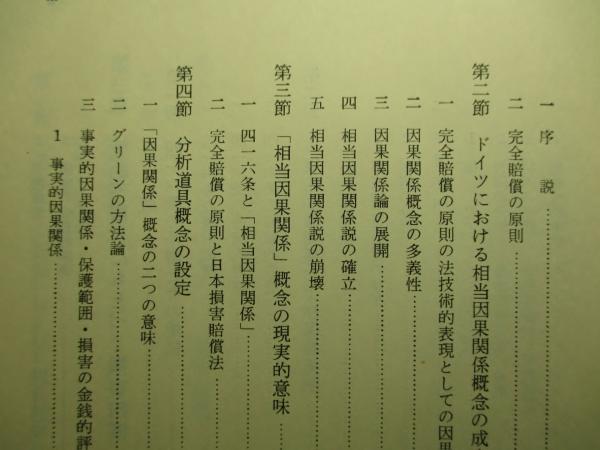 一　序　説……………………
二　完全賠償の原則……………………
第二節　ドイツにおける相当因果関係概念の成
一　完全賠償の原則の法技術的表現としての因果
二　因果関係概念の多義性……………………
三　因果関係論の展開……………………
四　相当因果関係説の確立……………………
五　相当因果関係説の崩壊……………………
第三節　「相当因果関係」概念の現実的意味……
一　四一六条と「相当因果関係」……………
二　完全賠償の原則と日本損害賠償法……
第四節　分析道具概念の設定……………………
一　「因果関係」概念の二つの意味……………
二　グリーンの方法論……………………
三　事実的因果関係・保護範囲・損害の金銭的評
1　事実的因果関係……………………